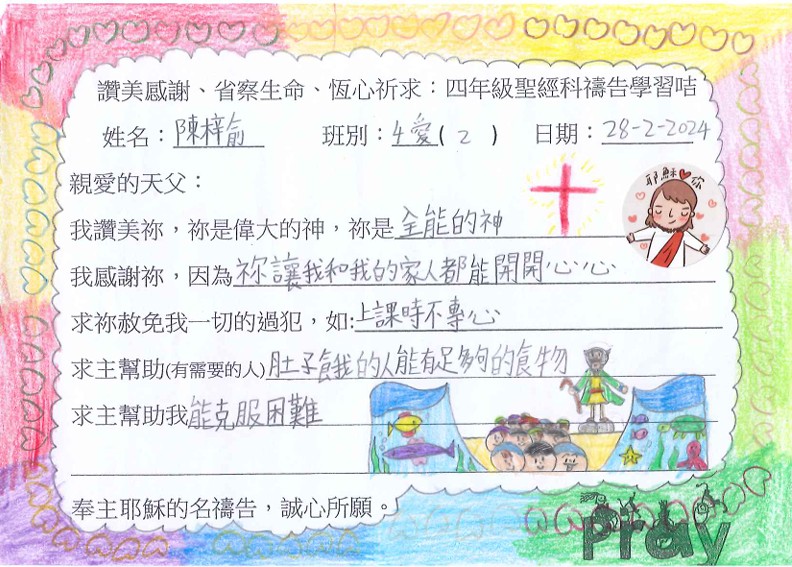 讚美感謝、省察生命、恆心祈求：四年級聖經科禱告學習咭
姓名：陳梓俞 班別：4愛( 2 ) 日期：28-2-2024
親愛的天父：
耶穌❤你
我讚美祢，祢是偉大的神，祢是全能的神
我感謝祢，因為祢讓我和我的家人都能開開心心
求祢赦免我一切的過犯，如:上課時不專心
求主幫助(有需要的人)肚子餓我的人能有足夠的食物
求主幫助我能克服困難
奉主耶穌的名禱告，誠心所願。
Pray